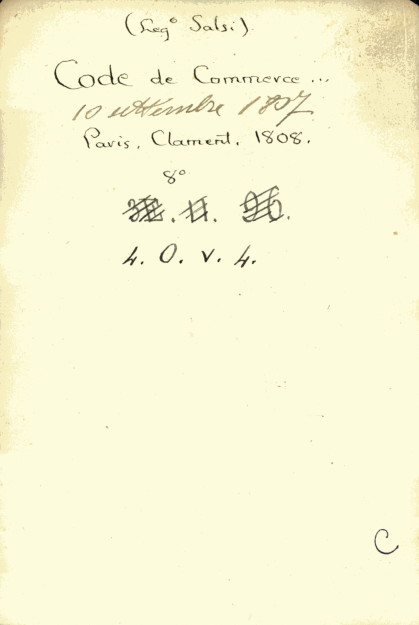 (Leg° Salsi)
Code de Commerce ...
10 settembre 1807
Paris. Clament. 1808.
8°
4. O. V. 4.
C